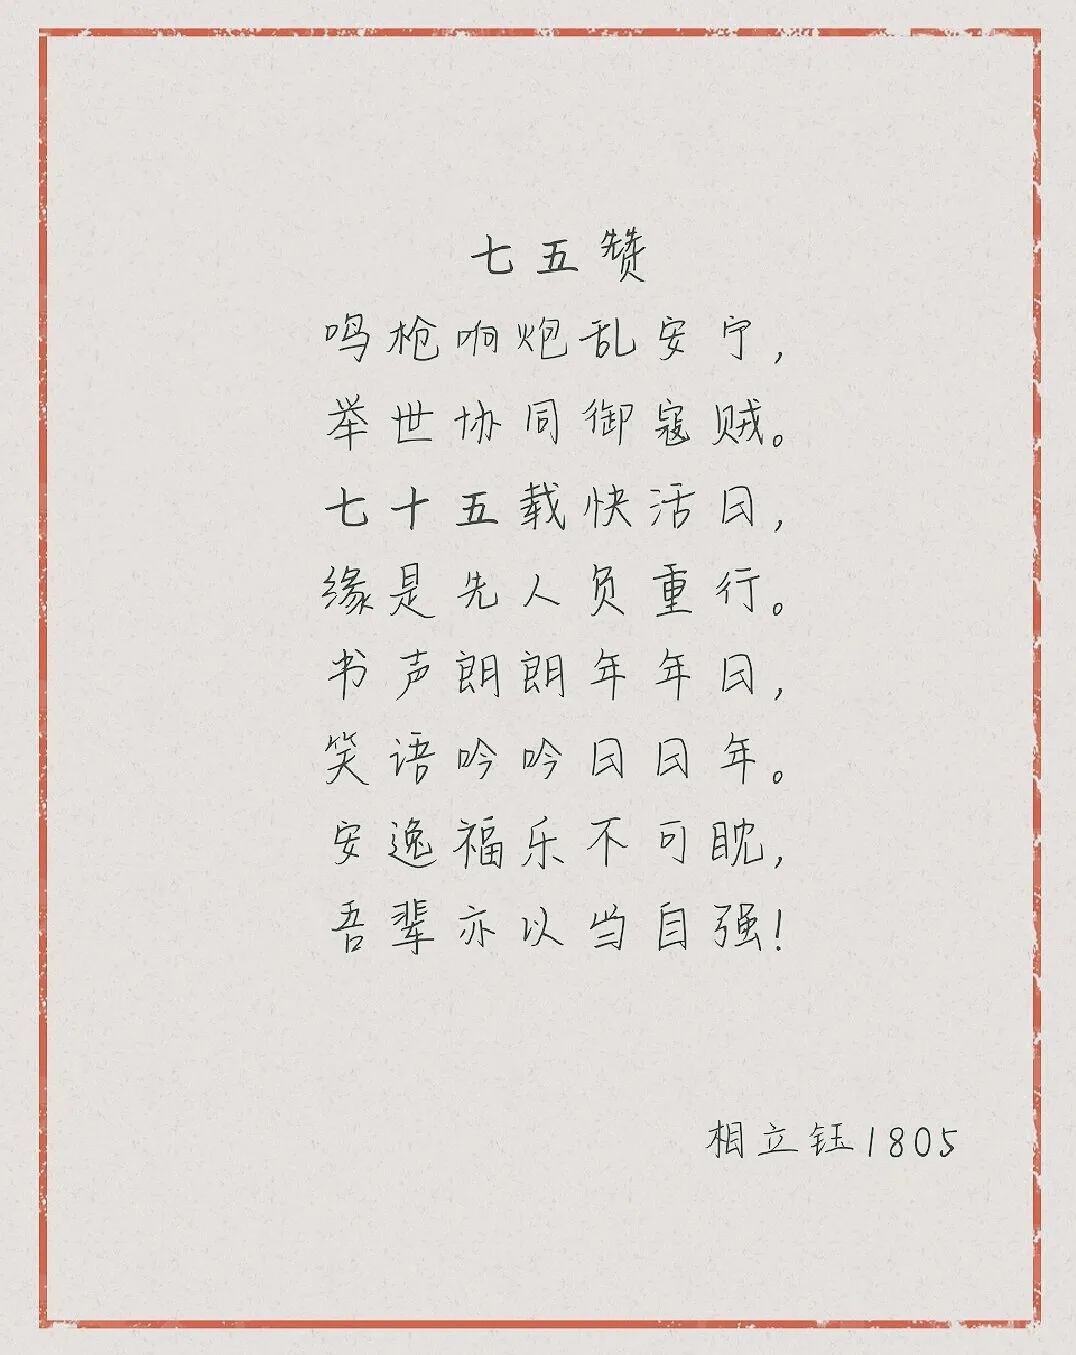 七五赞
鸣枪响炮乱安宁，
举世协同御寇贼。
七十五载快活日，
缘是先人负重行。
书声朗朗年年日，
笑语吟吟日日年。
安逸福乐不可眈，
吾辈亦以当自强！
相立钰1805